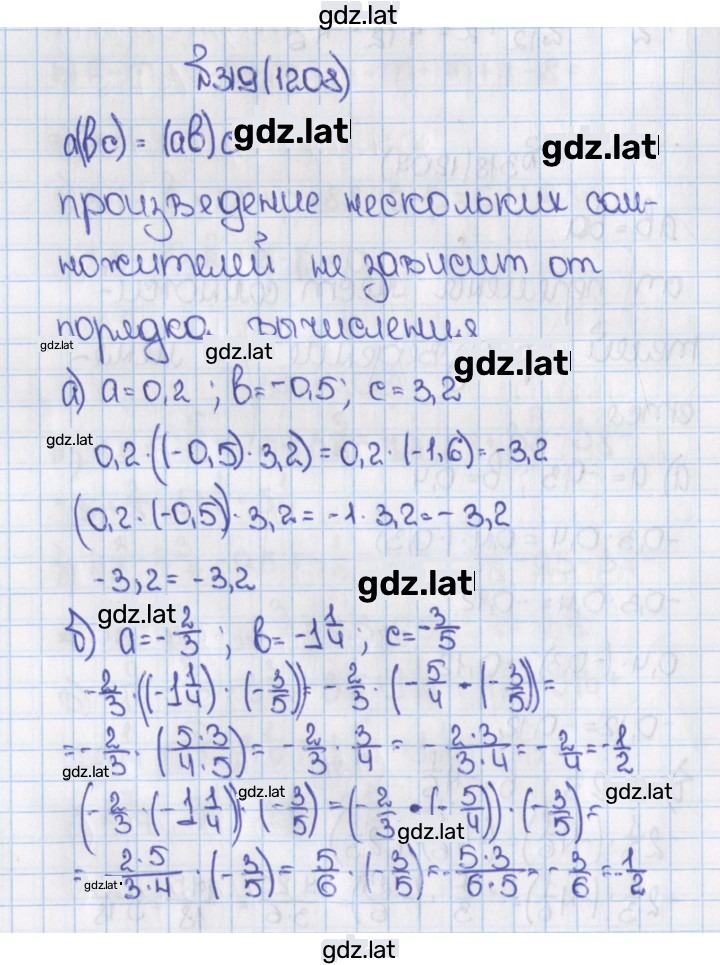 gdz.lat
№319(1208)
a(bc) = (ab)c gdz.lat
gdz.lat
произведение нескольких сом-
ножителей не зависит от
порядка вычисления
gdz.lat gdz.lat gdz.lat
а) a=0,2 ; b=-0,5; c=3,2
gdz.lat 0,2·((-0,5)·3,2)=0,2·(-1,6)=-3,2
(0,2·(-0,5))·3,2=-1·3,2=-3,2
-3,2=-3,2 gdz.lat
gdz.lat
б) a=-2/3 ; b=-1 1/4 ; c=-3/5
-2/3·((-1 1/4)·(-3/5))=-2/3·(-5/4·(-3/5))=
=-2/3·(5·3/4·5)=-2/3·3/4=-2·3/3·4=-2/4=-1/2
gdz.lat gdz.lat gdz.lat
(-2/3·(-1 1/4))·(-3/5)=(-2/3·(-5/4))·(-3/5)=
gdz.lat
=2·5/3·4·(-3/5)=5/6·(-3/5)=-5·3/6·5=-3/6=-1/2
gdz.lat
gdz.lat